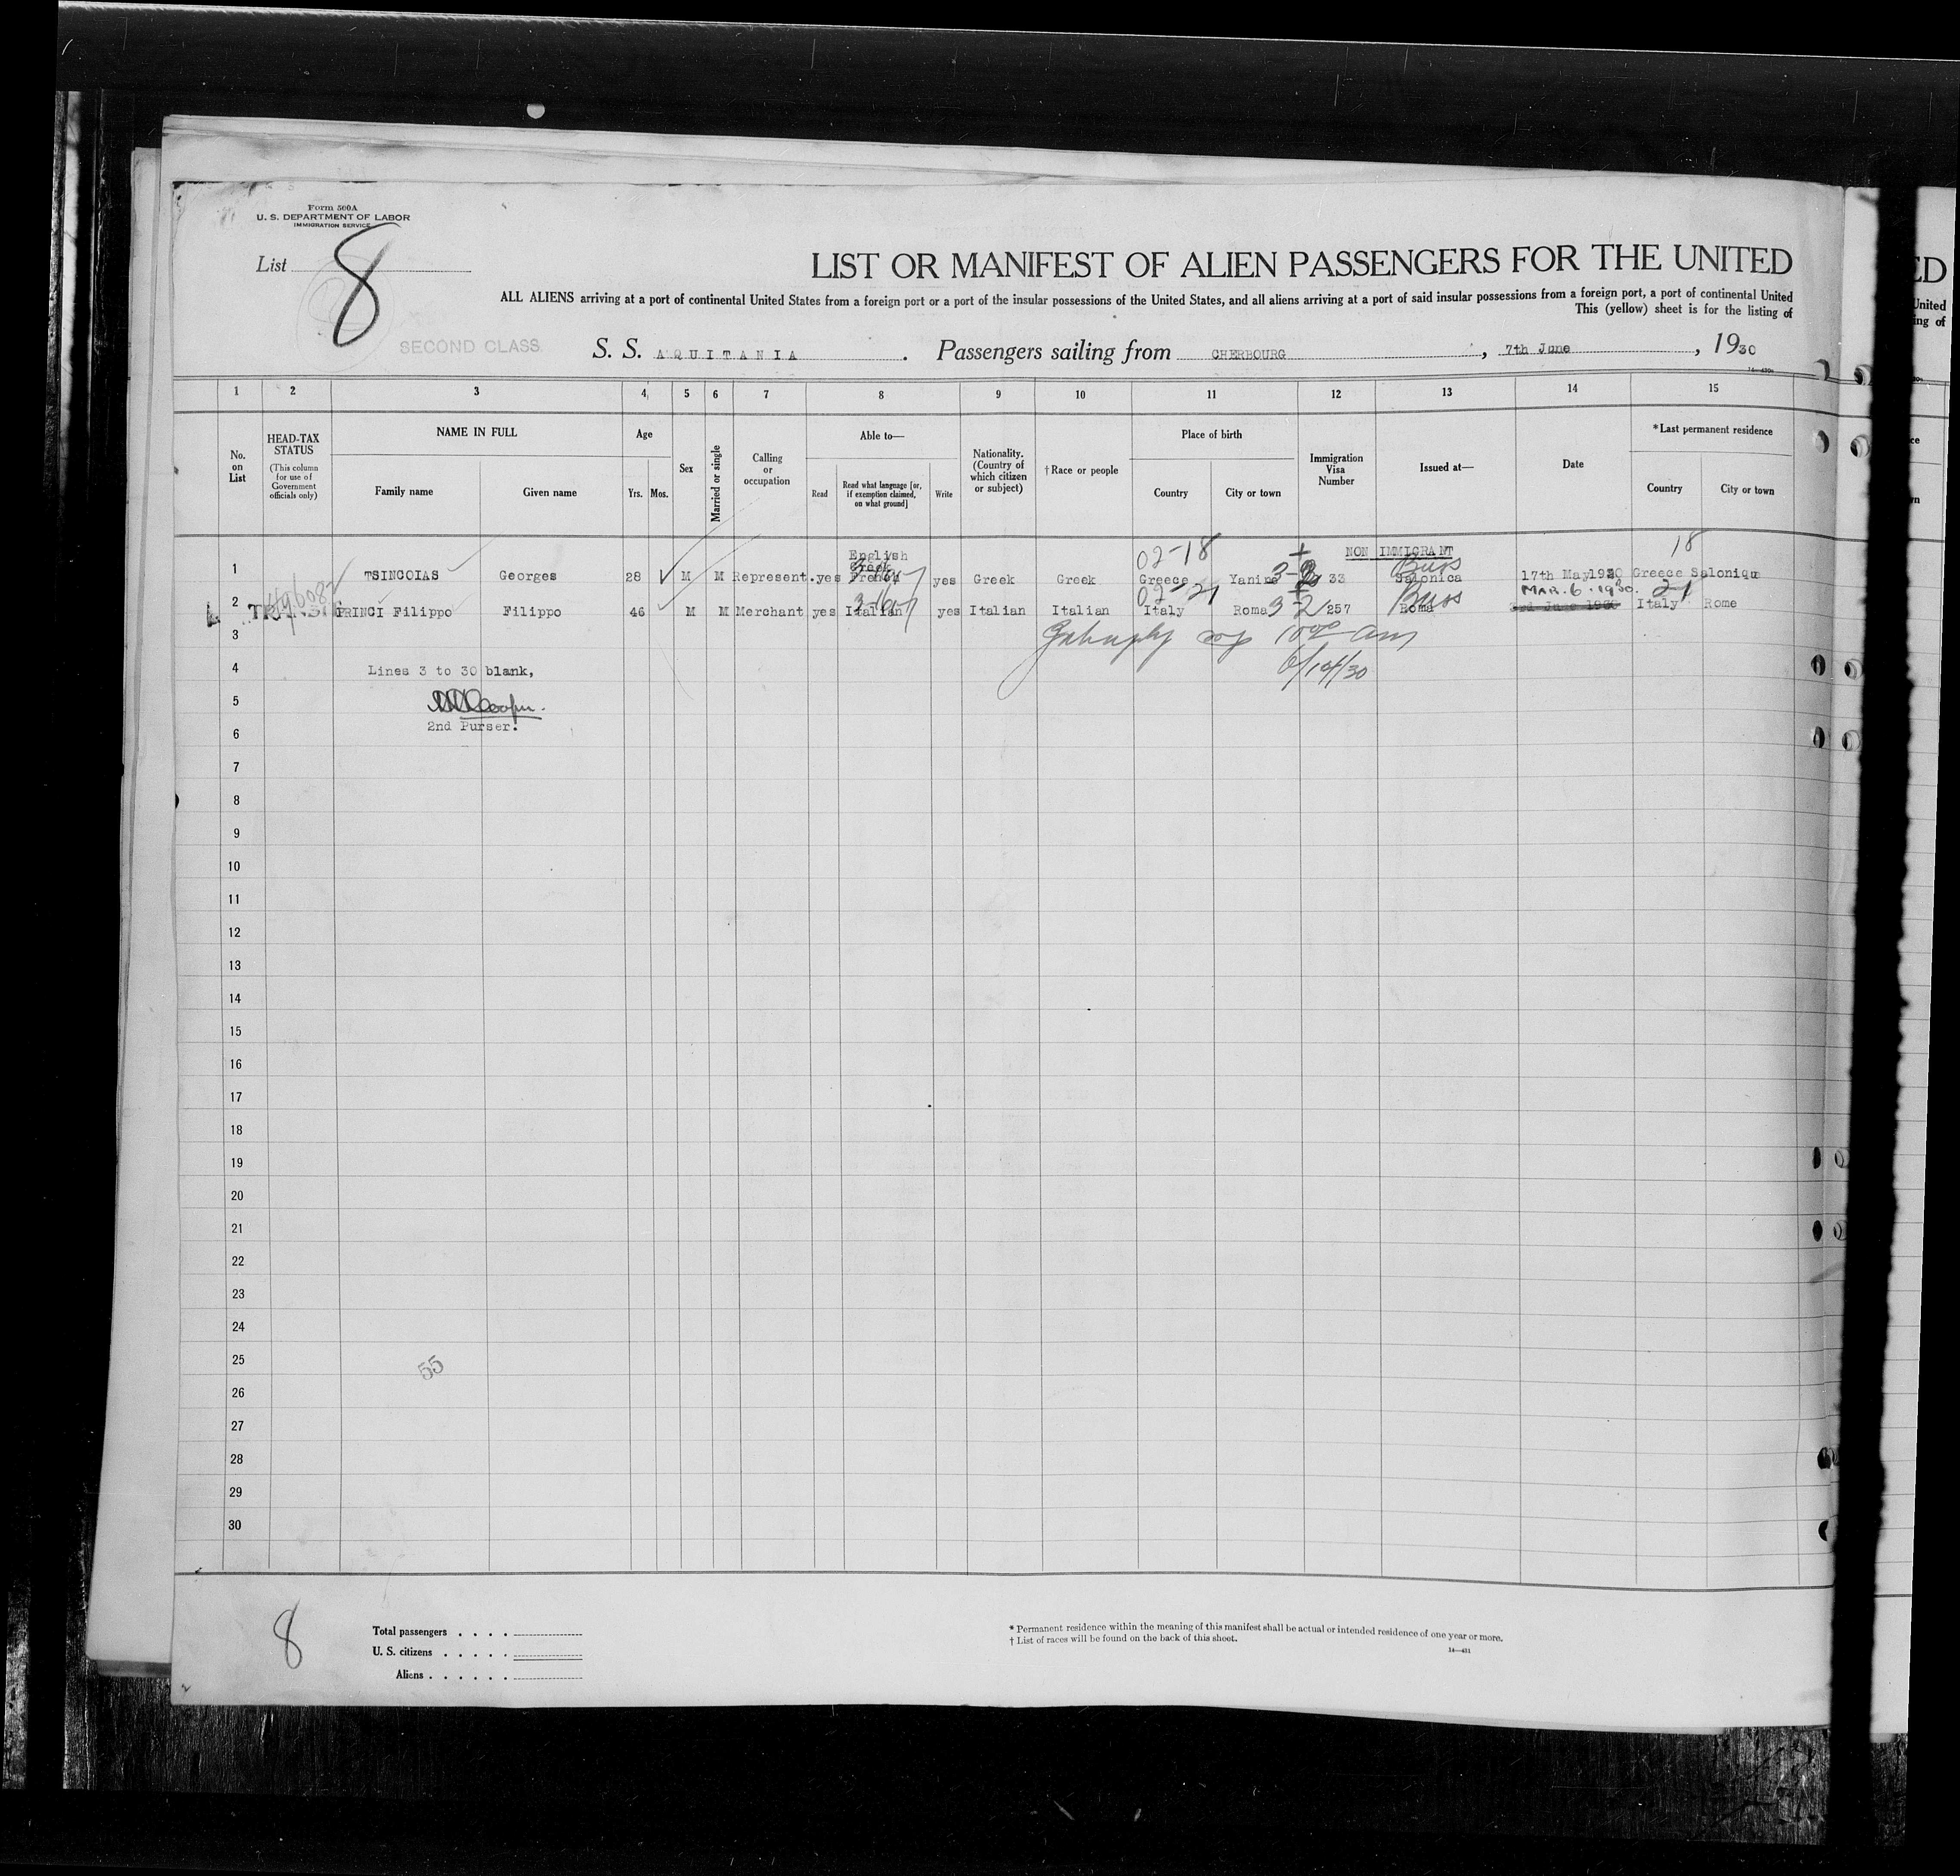 Form 500A
U. S. DEPARTMENT OF LABOR
IMMIGRATION SERVICE
List 8
LIST OR MANIFEST OF ALIEN PASSENGERS FOR THE UNITED
ALL ALIENS arriving at a port of continental United States from a foreign port or a port of the insular possessions of the United States, and all aliens arriving at a port of said insular possessions from a foreign port, a port of continental United
This (yellow) sheet is for the listing of
SECOND CLASS
S. S. AQUITANIA. Passengers sailing from CHERBOURG, 7th June, 1930
1 2 3 4 5 6 7 8 9 10 11 12 13 14 15
No. on List
HEAD-TAX STATUS (This column for use of Government officials only)
NAME IN FULL
Family name
Given name
Age
Yrs. Mos.
Sex
Married or single
Calling or occupation
Able to—
Read
Read what language [or, if exemption claimed, on what ground]
Write
Nationality. (Country of which citizen or subject)
† Race or people
Place of birth
Country
City or town
Immigration Visa Number
Issued at—
Date
*Last permanent residence
Country
City or town
02-18 NON IMMIGRANT 18
English
Greek
1 TSINCOIAS Georges 28 M M Represent. yes French yes Greek Greek Greece Yanina 33 Salonica 17th May 1930 Greece Salonique
02-21 MAR. 6. 1930. 21
2 TRANSIT GRINCI Filippo Filippo 46 M M Merchant yes Italian yes Italian Italian Italy Roma 3-2 257 Roma Italy Rome
3
6/14/30
4 Lines 3 to 30 blank,
5
2nd Purser.
6
7
8
9
10
11
12
13
14
15
16
17
18
19
20
21
22
23
24
25 55
26
27
28
29
30
8
Total passengers
U. S. citizens
Aliens
* Permanent residence within the meaning of this manifest shall be actual or intended residence of one year or more.
† List of races will be found on the back of this sheet.
14—431